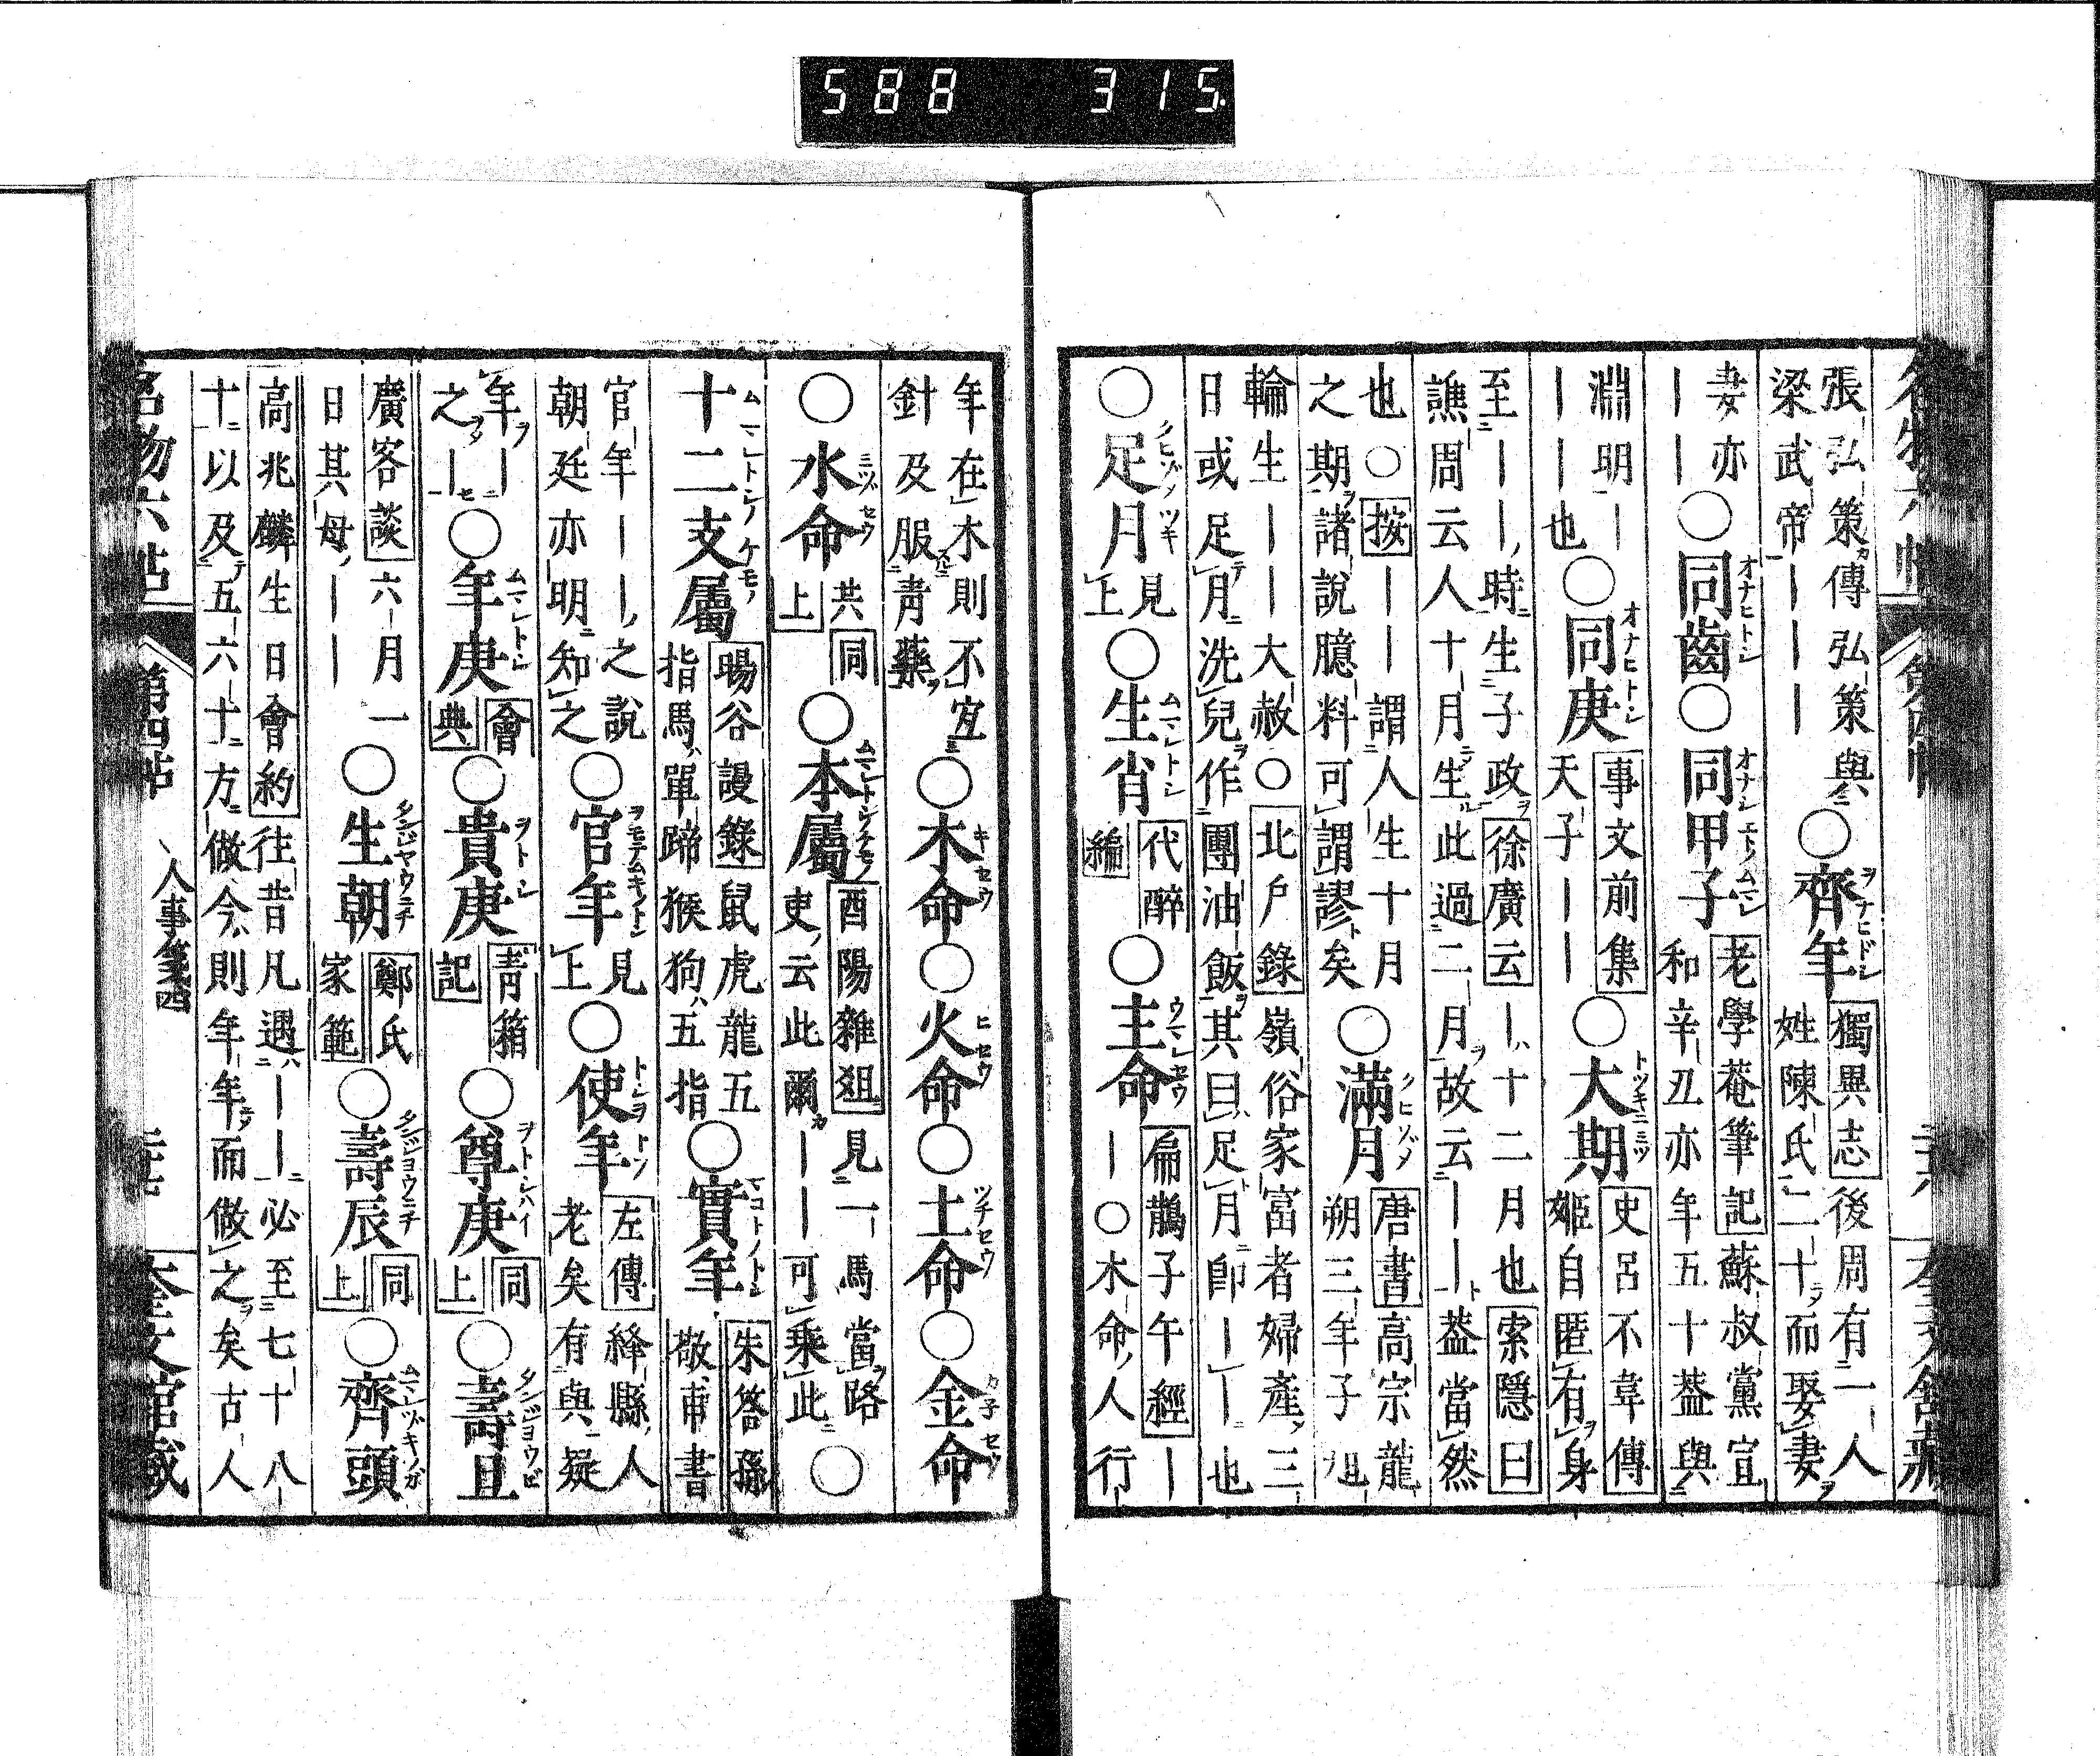 名物六帖 第四帖 奎文館藏
張弘策傳弘策與
梁武帝｜｜｜
○齊年
獨異志後周有一人
姓陳氏二十而娶妻
妻亦
｜｜
○同齒○同甲子
老學菴筆記蘇叔黨宣
和辛丑亦年五十蓋與
淵明｜
｜｜也
○同庚
事文前集
天子｜｜
○大期
史呂不韋傳
姬自匿有身
至｜｜時生子政徐廣云｜十二月也索隱曰
譙周云人十月生此過二月故云｜｜蓋當然
也○按｜｜謂人生十月
之期諸說臆料可謂謬矣
○滿月
唐書高宗龍
朔三年子旭
輪生｜｜大赦○北戶錄嶺俗家富者婦產三
日或足月洗兒作團油飯其曰足月卽｜｜也
○足月
見
上
○生肖
代醉
編
○主命
扁鵲子午經｜
｜○木命人行
年在木則不宜
針及服靑藥
○木命○火命○土命○金命
○水命
共同
上
○本屬
酉陽雜俎見一馬當路
吏云此爾｜｜可乘此
○
十二支屬
暘谷謾錄鼠虎龍五
指馬單蹄猴狗五指
○實年
朱答孫
敬甫書
官年｜｜之說
朝廷亦明知之
○官年
見
上
○使年
左傳絳縣人
老矣有與疑
年｜
之｜
○年庚
會
典
○貴庚
靑箱
記
○尊庚
同
上
○壽旦
廣客談六月一
日其母｜｜
○生朝
鄭氏
家範
○壽辰
同
上
○齊頭
高兆麟生日會約往昔凡遇｜｜必至七十八
十以及五六十方做今則年年而做之矣古人
名物六帖 第四帖 人事箋四 奎文館藏
588 315